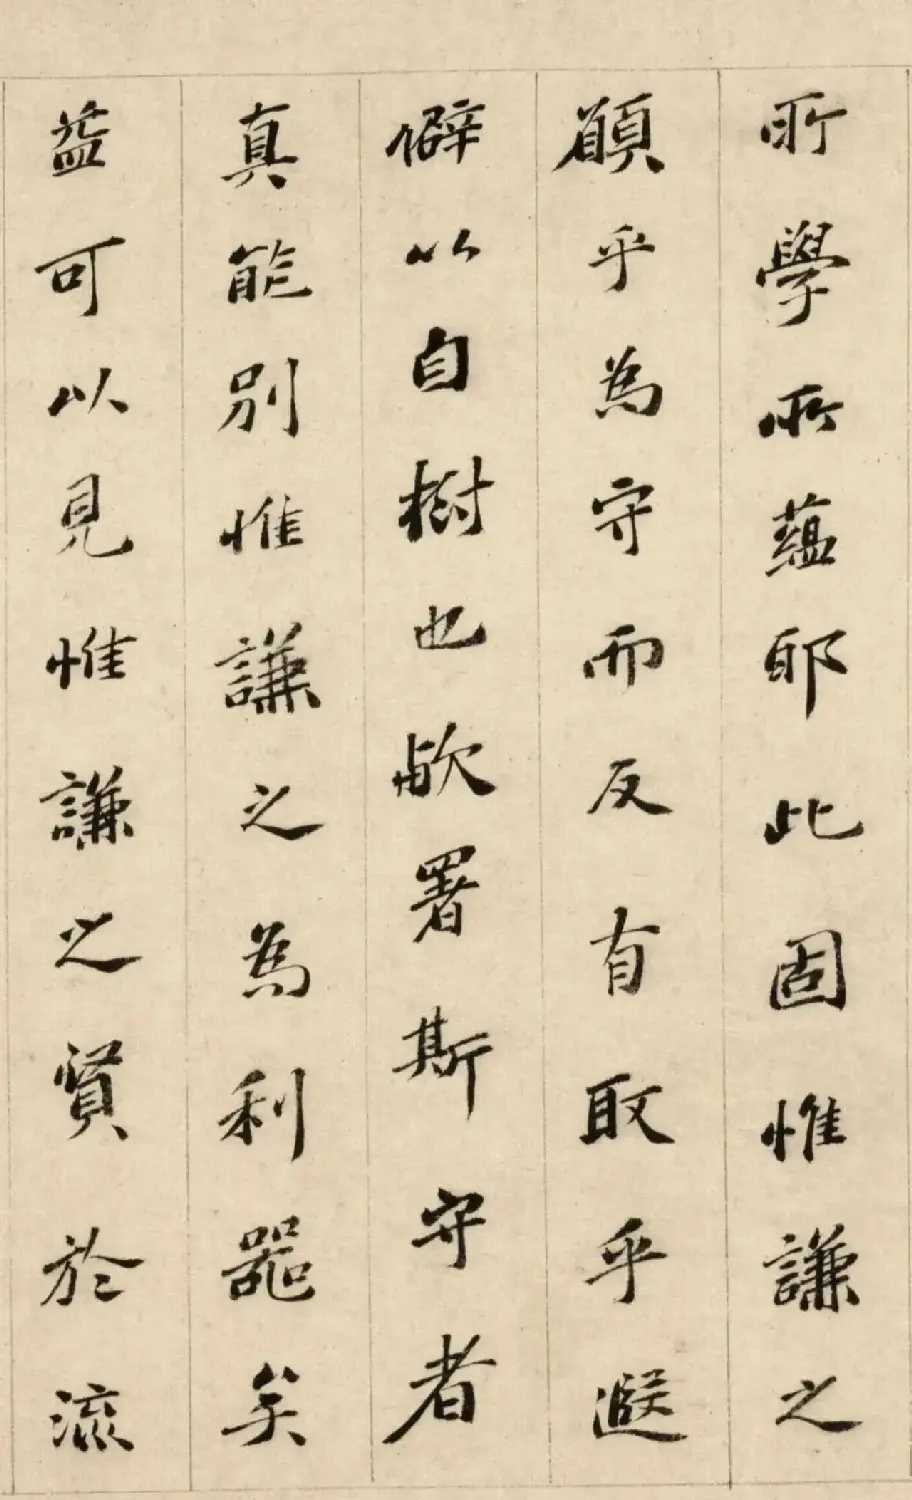 所學所蘊耶此固惟謙之
願乎為守而反有取乎遐
僻以自樹也歟署斯守者
真能別惟謙之為利器矣
益可以見惟謙之賢於流